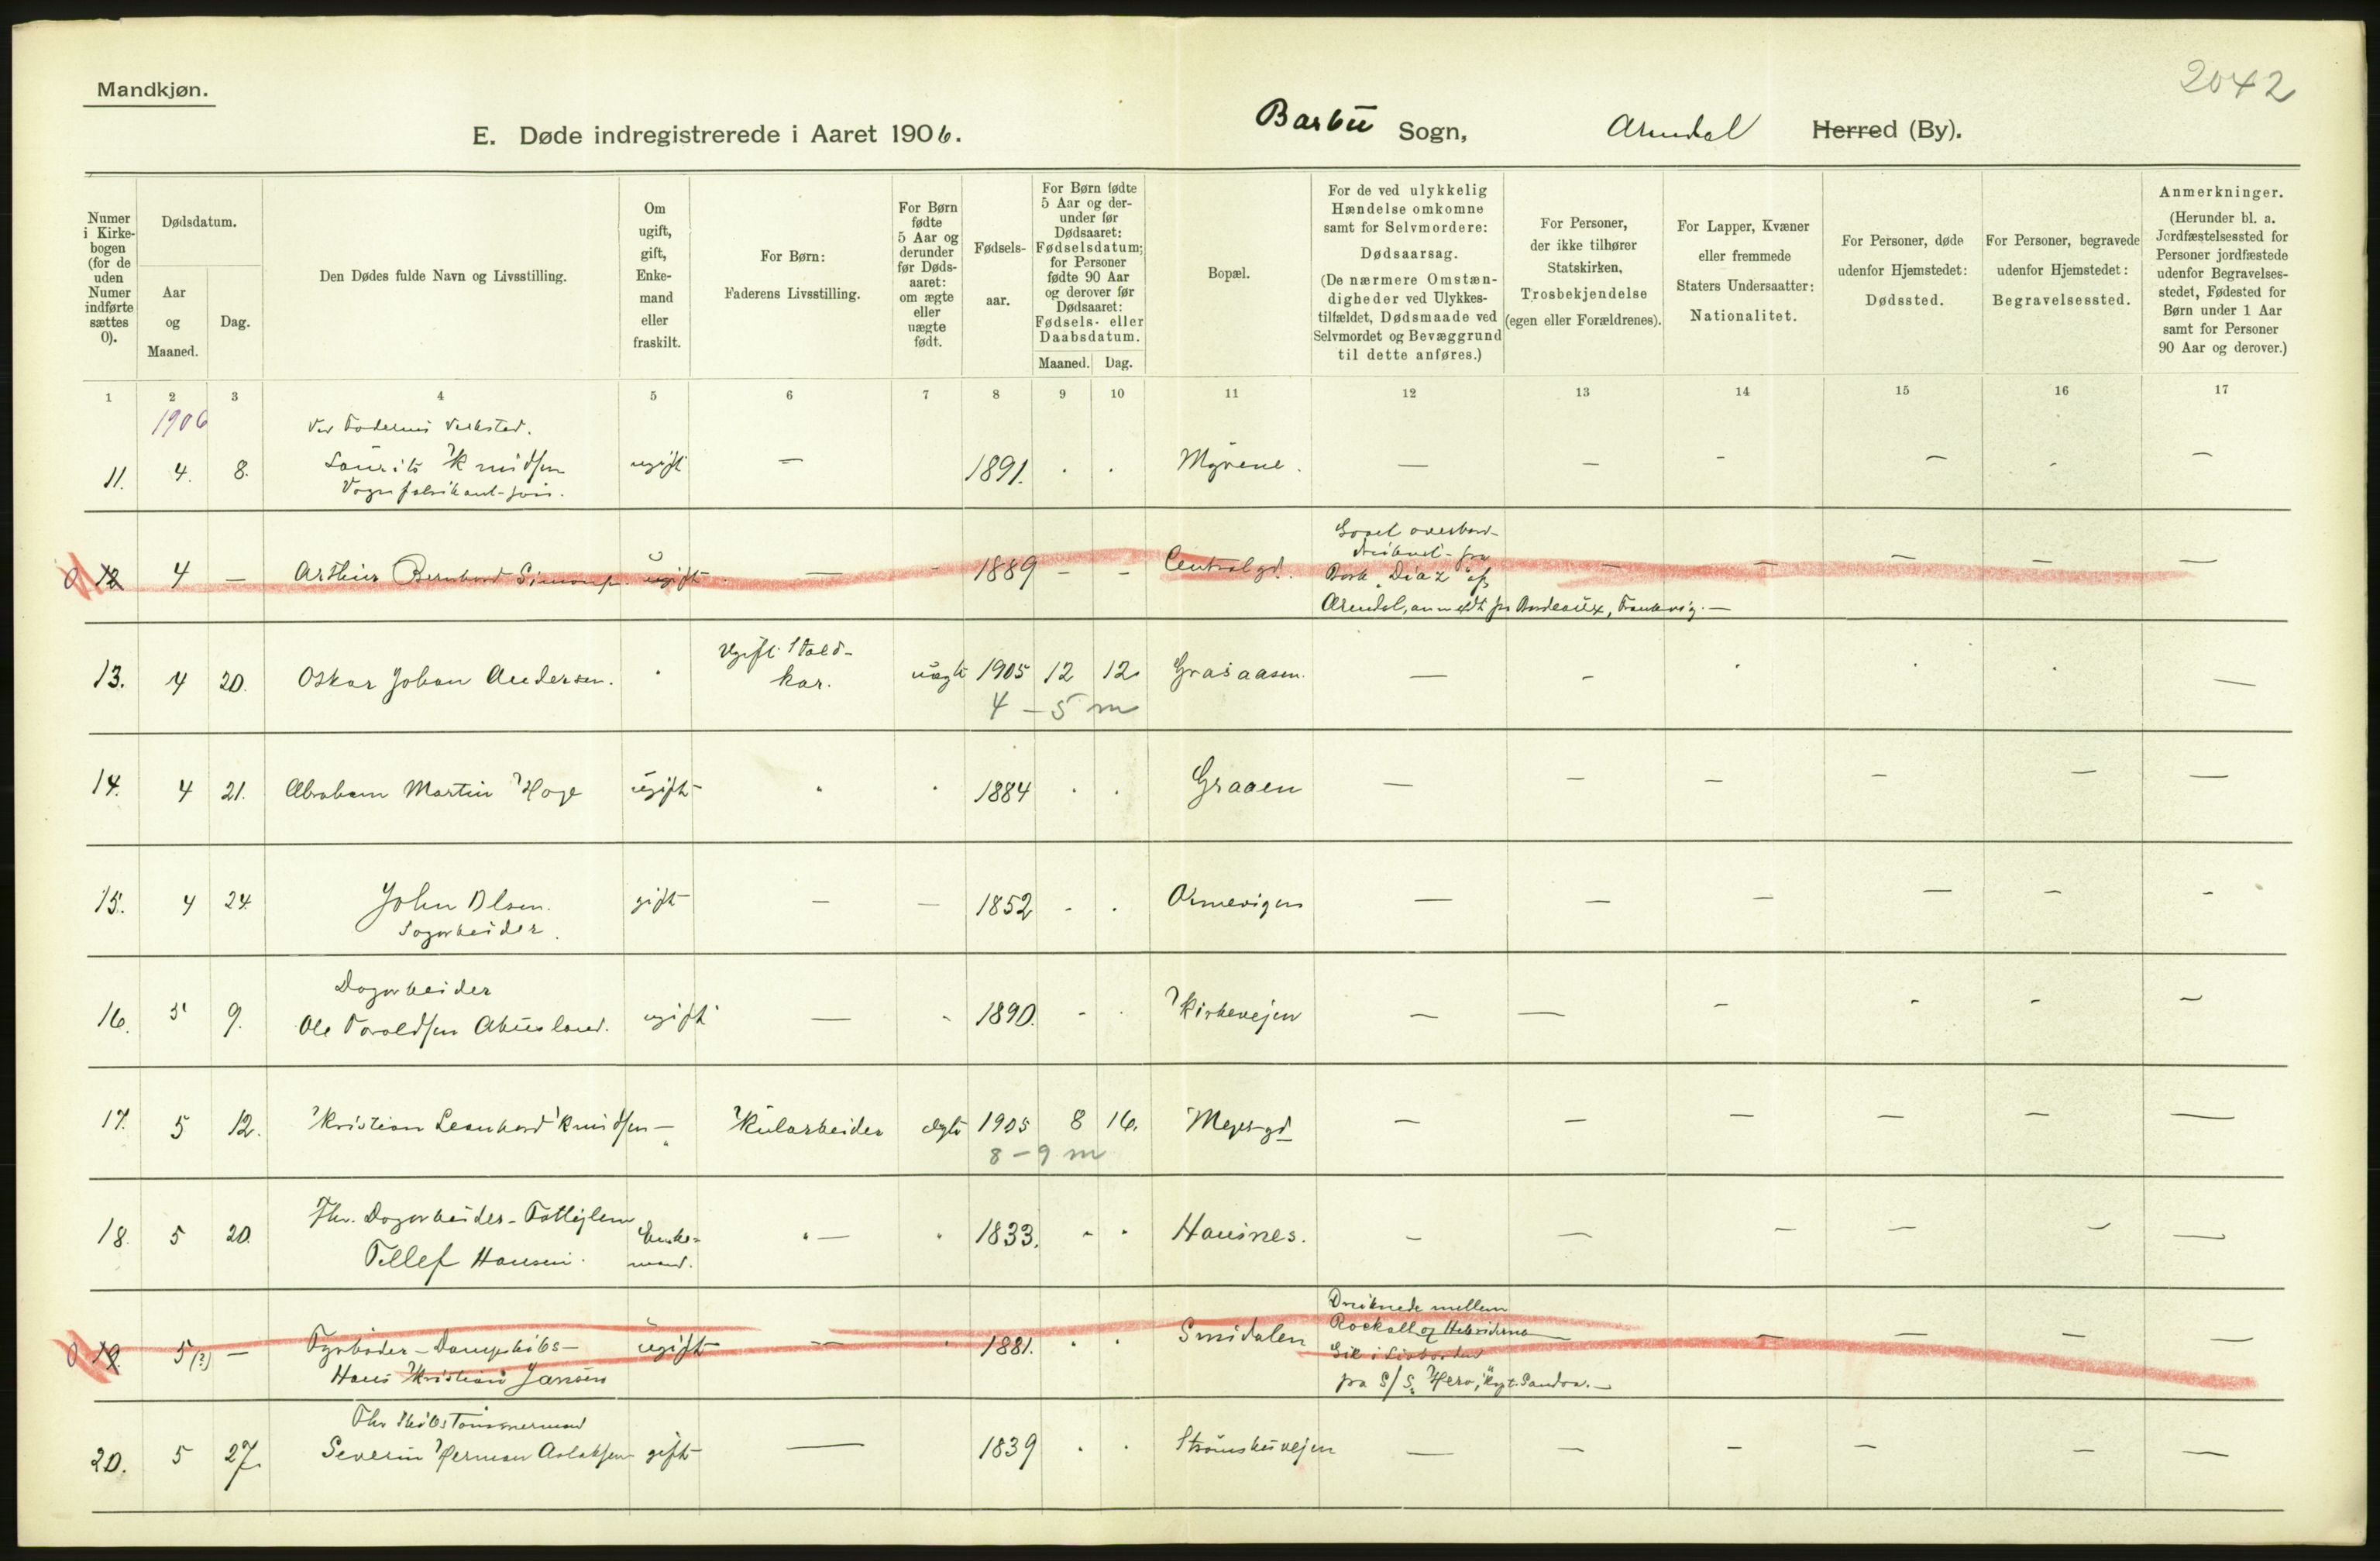 Mandkjøn.
2042
E. Døde indregistrerede i Aaret 1906.
Barbu Sogn, Arendal Herred (By).
Numer i Kirkebogen (for de uden Numer indførte sættes 0).
Dødsdatum.
Aar og Maaned.
Dag.
Den Dødes fulde Navn og Livsstilling.
Om ugift, gift, Enkemand eller fraskilt.
For Børn: Faderens Livsstilling.
For Børn fødte 5 Aar og derunder før Dødsaaret: om ægte eller uægte født.
Fødselsaar.
For Børn fødte 5 Aar og derunder før Dødsaaret: Fødselsdatum; for Personer fødte 90 Aar og derover før Dødsaaret: Fødsels- eller Daabsdatum.
Maaned. Dag.
Bopæl.
For de ved ulykkelig Hændelse omkomne samt for Selvmordere: Dødsaarsag. (De nærmere Omstændigheder ved Ulykkestilfældet, Dødsmaade ved Selvmordet og Bevæggrund til dette anføres.)
For Personer, der ikke tilhører Statskirken, Trosbekjendelse (egen eller Forældrenes).
For Lapper, Kvæner eller fremmede Staters Undersaatter: Nationalitet.
For Personer, døde udenfor Hjemstedet: Dødssted.
For Personer, begravede udenfor Hjemstedet: Begravelsessted.
Anmerkninger. (Herunder bl. a. Jordfæstelsessted for Personer jordfæstede udenfor Begravelsesstedet, Fødested for Børn under 1 Aar samt for Personer 90 Aar og derover.)
1 2 3 4 5 6 7 8 9 10 11 12 13 14 15 16 17
1906
Ved Faderens Verksted.
11. 4. 8. Laurits Knudsen ugift — 1891. Myrene. — — — — — —
Vognfabrikant-søn.
0 12 4 — Arthur Bernhard Simonsen ugift — - 1889 — — Centralgd. Gaaet overbord- druknet- fra Bark "Diaz" af Arendal, anmeldt fra Bordeaux, Frankrig. —
13. 4 20. Oskar Johan Andersen. Ugift Staldkar. uægte 1905 12 12 Graasaasen. — - —
4 – 5 m
14. 4 21. Abraham Martin Hoge ugift 1884 Graaen — — — — — —
15. 4 24. John Olsen. gift — — 1852 - . — — — — — -
Sagarbeider.
Dagarbeider
16. 5 9. Ole Taraldsen ugift — 1890. - Kirkevejen — — — - - —
17. 5 12. Kristian Leonhard Knudsen — Kularbeider ægte 1905 8 16. Meyersgd — — — — — —
8 – 9 m
Fhv. Dagarbeider-
18. 5 20. Tellef Hansen. Enkemand. — 1833. Hausnes. — — — — — —
0 19. 5(?) — Fyrbøder – Dampskibs – ugift — 1881. Smidalen Druknede mellem Rockall og Hebriderne
Hans Kristian Jansen
Gik i Livbaaden fra S/S "Hero", — — — — —
Fhv Skibstømmermand
20. 5 27. Severin Herman Aslaksen gift — 1839 Strømsbuvejen — — — — — —